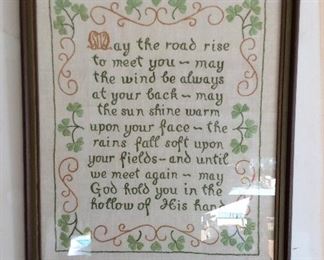 May the road rise
to meet you ~ may
the wind be always
at your back ~ may
the sun shine warm
upon your face ~ the
rains fall soft upon
your fields ~ and until
we meet again ~ may
God hold you in the
hollow of His hand